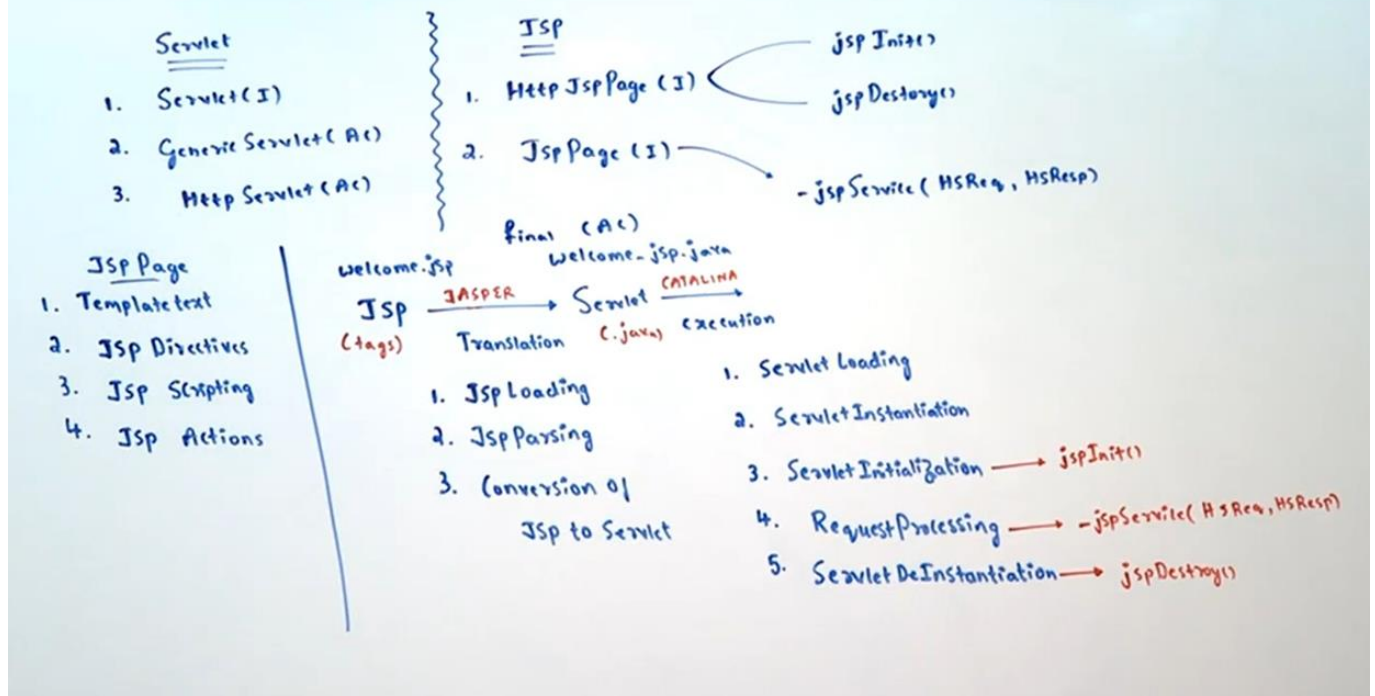 Servlet
1. Servlet(I)
2. Generic Servlet(AC)
3. Http Servlet(AC)
JSP
1. Http JspPage (I)
jspInit()
jspDestory()
2. JspPage (I)
-jspService( HSReq, HSResp)
JSP Page
1. Template text
2. JSP Directives
3. JSP Scripting
4. JSP Actions
final (AC)
welcome.jsp welcome-jsp.java
JSP JASPER Servlet CATALINA
(tags) Translation (.java) execution
1. JSP Loading
2. JSP Parsing
3. Conversion of
JSP to Servlet
1. Servlet Loading
2. Servlet Instantiation
3. Servlet Intialization jspInit()
4. Request Processing -jspService( HSReq, HSResp)
5. Servlet DeInstantiation jspDestroy()